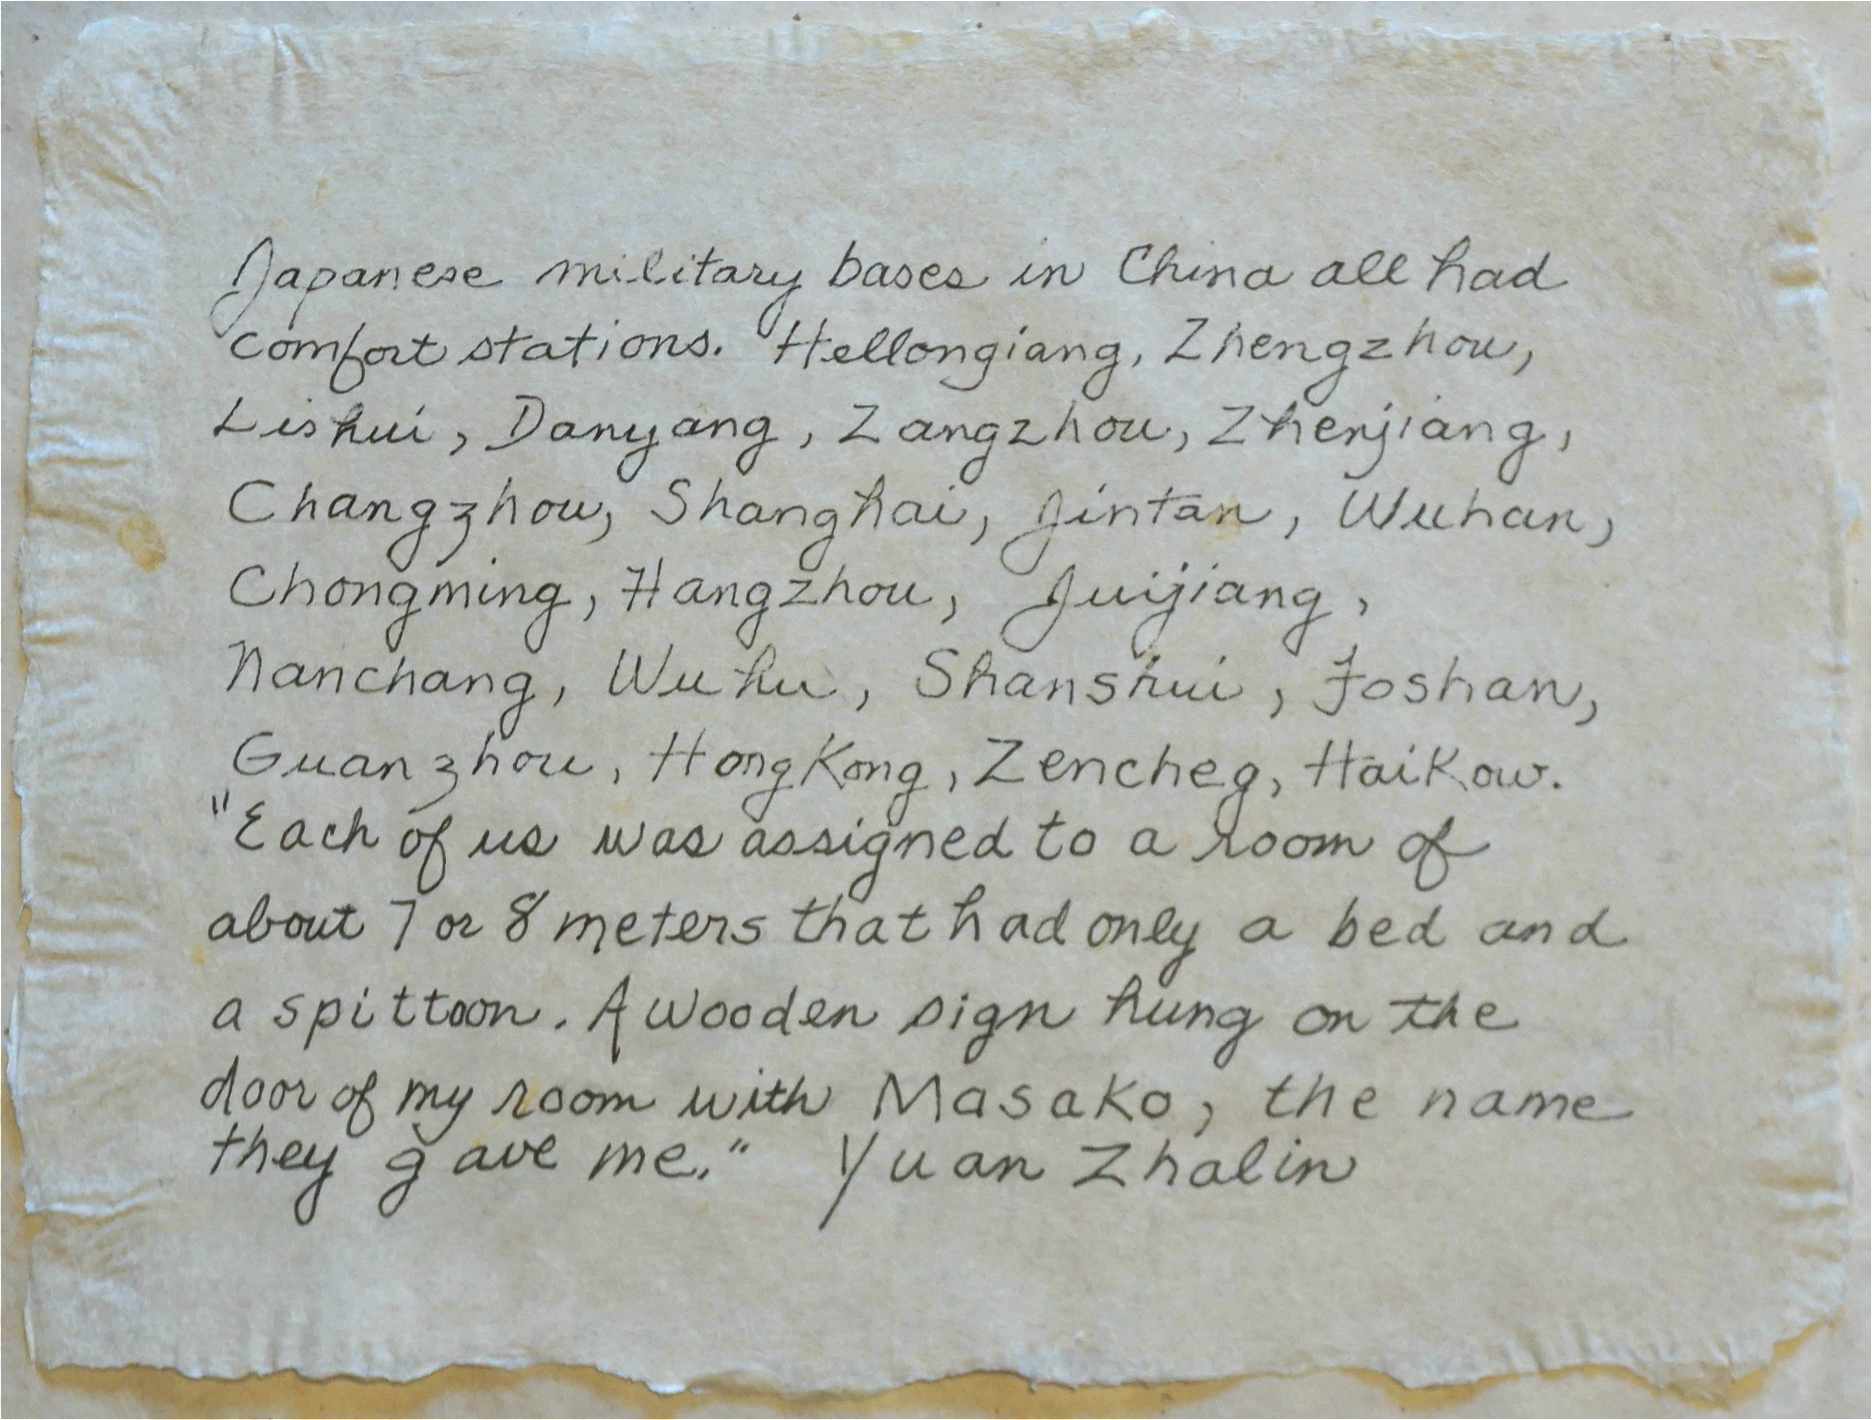 Japanese military bases in China all had
comfort stations. Hellongiang, Zhengzhou,
Lishui, Danyang, Zangzhou, Zhenjiang,
Changzhou, Shanghai, Jintan, Wuhan,
Chongming, Hangzhou, Juijiang,
Nanchang, Wuhu, Shanshui, Foshan,
Guanzhou, HongKong, Zencheg, Haikow.
"Each of us was assigned to a room of
about 7 or 8 meters that had only a bed and
a spittoon. A wooden sign hung on the
door of my room with Masako, the name
they gave me." Yuan Zhalin